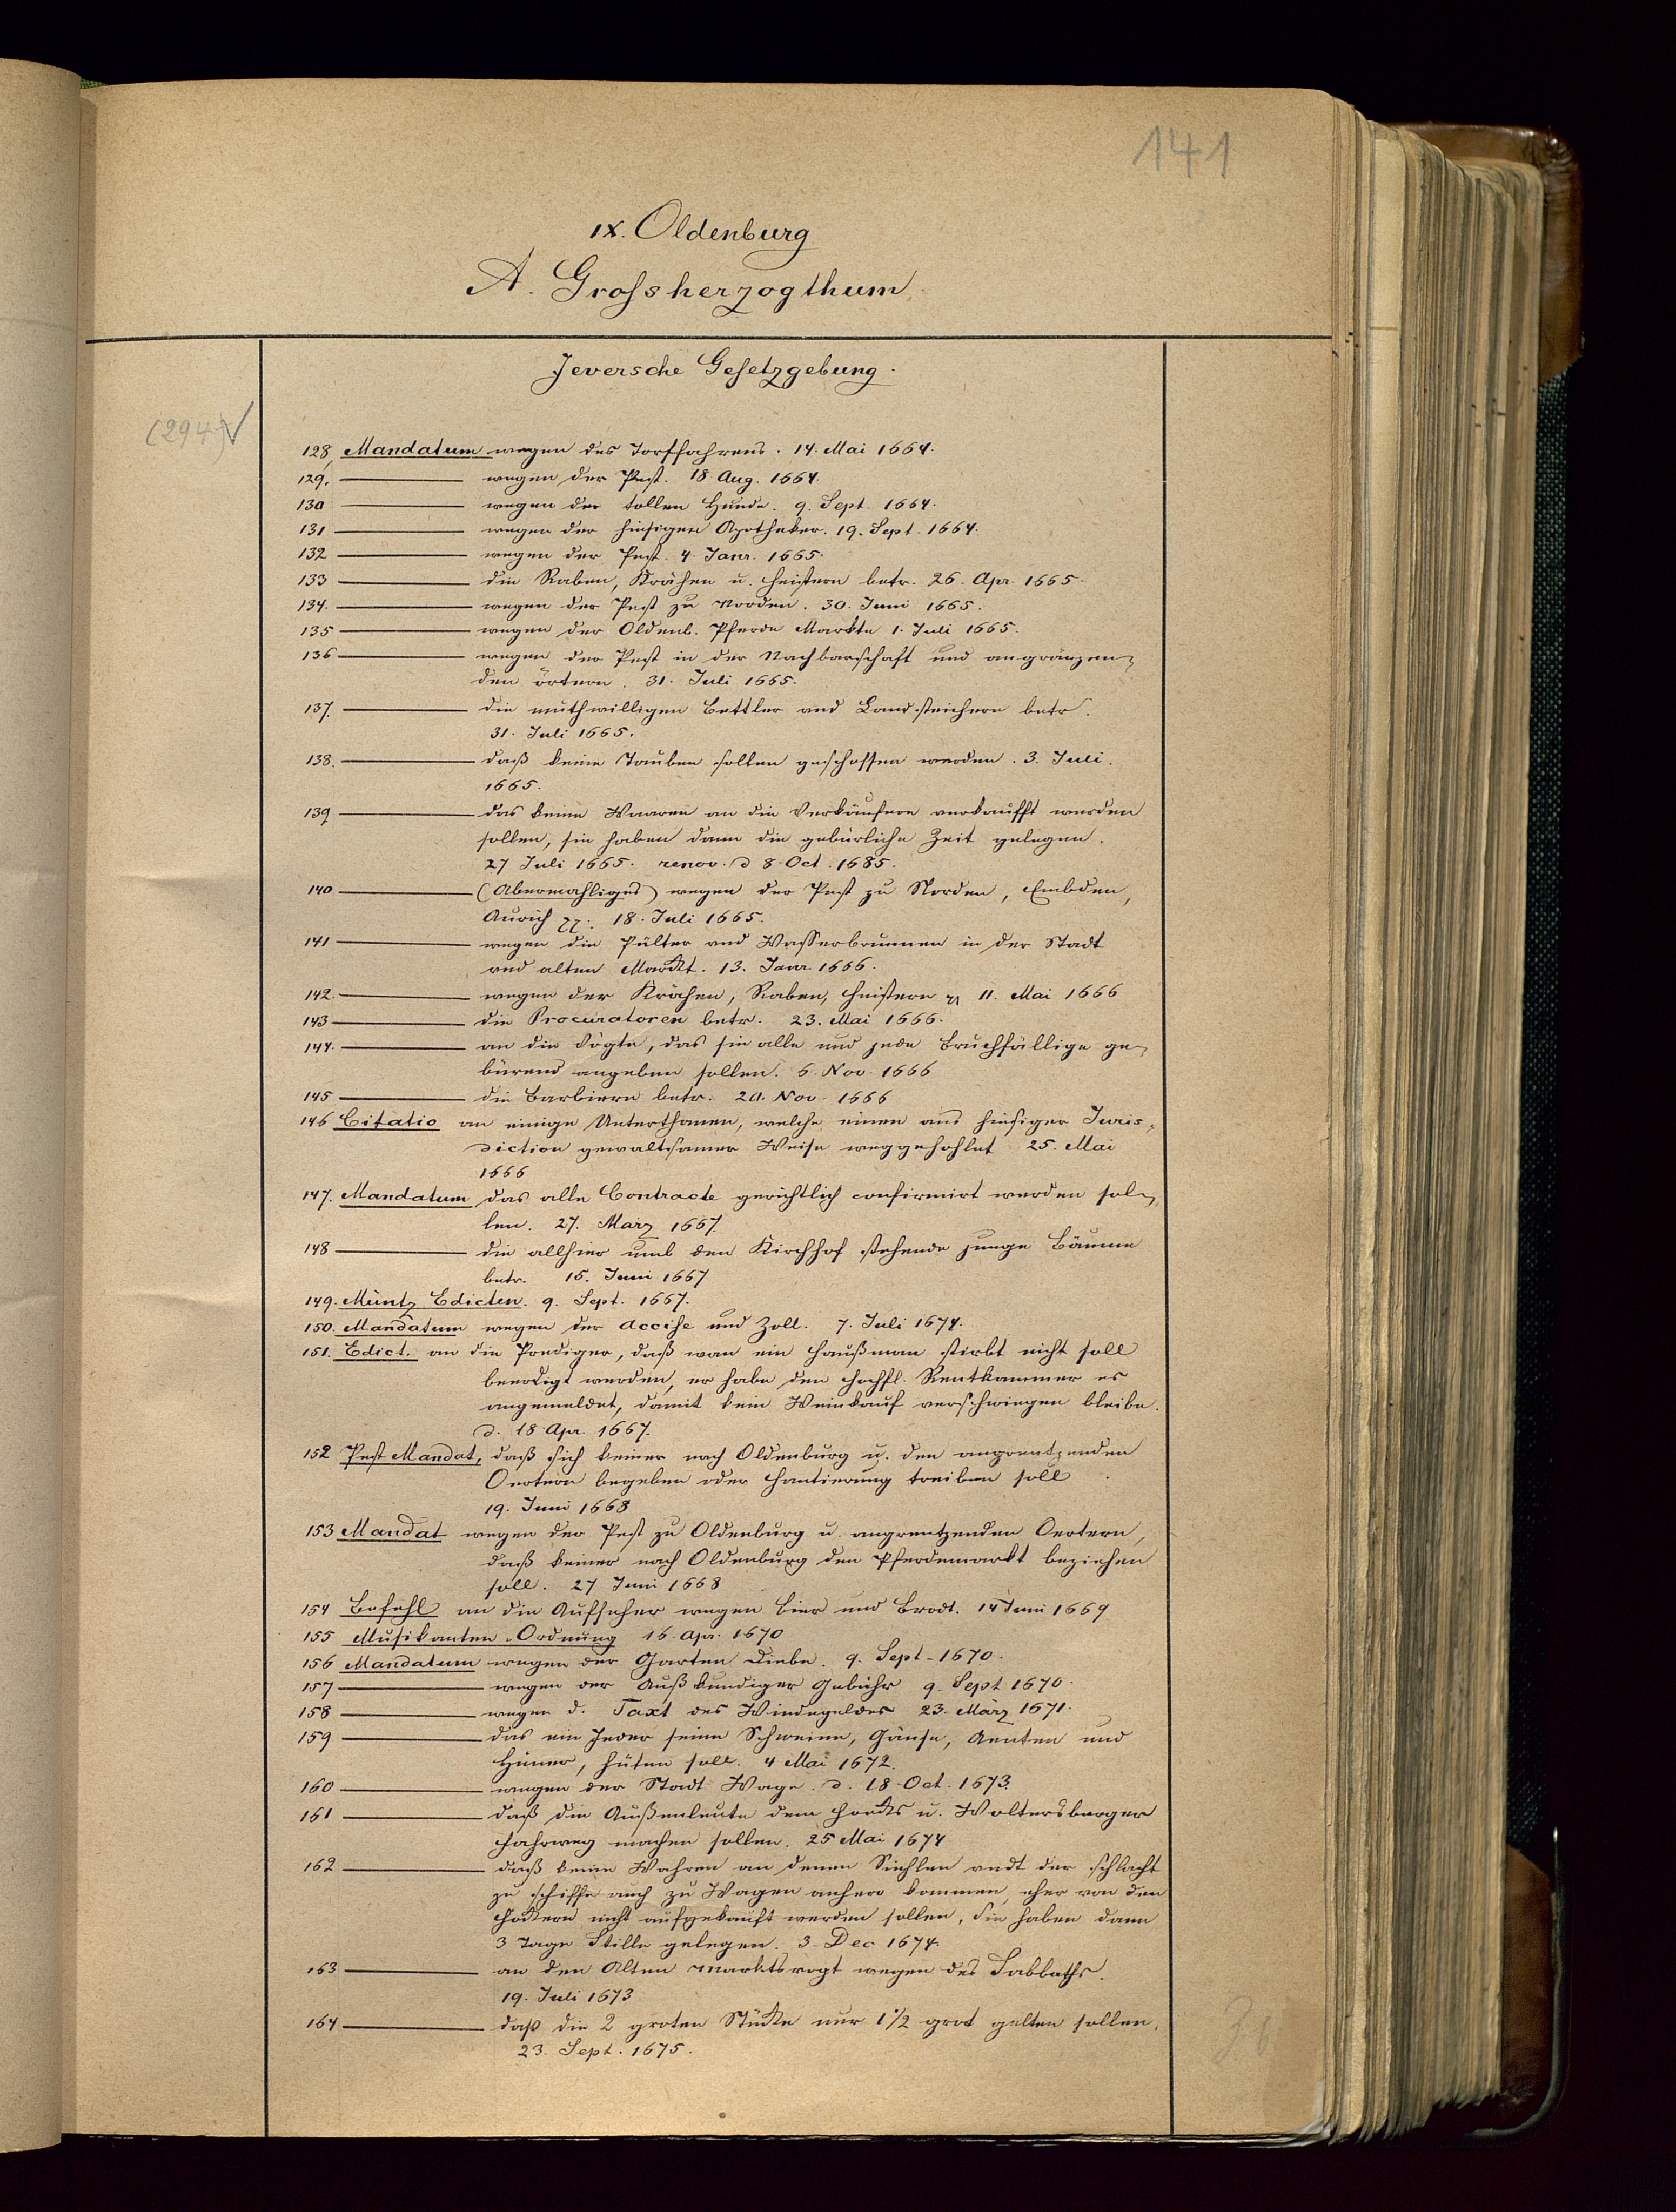 141
IX. Oldenburg
A. Grossherzogthum
Jeversche Gesetzgebung.
(294) ✓
128, Mandatum wegen des Torffahrens. 14. Mai 1664.
129. ——— wegen der Pest. 18 Aug. 1664.
130 ——— wegen der tollen Hunde. 9. Sept. 1664.
131 ——— wegen der hiesigen Apotheker. 19. Sept. 1664.
132 ——— wegen der Pest. 4. Janr. 1665.
133 ——— die Raben, Krähen u. Heistern betr. 26. Apr. 1665.
134. ——— wegen der Pest zu Norden. 30. Juni 1665.
135 ——— wegen der Oldenb. Pferde Markte 1. Juli 1665.
136 ——— wegen der Pest in der Nachbarschaft und angränzen-
den örtern. 31. Juli 1665.
137. ——— die muthwilligen Bettler und Landstreichere betr.
31. Juli 1665.
138. ——— daß keine Tauben sollen geschossen werden. 3. Juli.
1665.
139 ——— das keine Waaren an die Verkäufere verkaufft werden
sollen, sie haben dann die gebürliche Zeit gelegen.
27 Juli 1665. renov. d 8. Oct. 1685.
140 ——— (Abermahliges) wegen der Pest zu Norden, Embden,
Aurich pp. 18. Juli 1665.
141 ——— wegen die Pülter und Wasserbrunnen in der Stadt
und alten Markt. 13. Janr. 1666.
142. ——— wegen der Krähen, Raben, Heistern pp 11. Mai 1666
143 ——— die Procuratoren betr. 23. Mai 1666.
144. ——— an die Vögte, das sie alle und jede Bruchfällige ge-
bürend angeben sollen. 6. Nov. 1666
145 ——— die Barbiern betr. 20. Nov. 1666
146 Citatio an einige Unterthanen, welche einen aus hiesiger Juris-
diction gewaltsamer Weise weggehohlet 25. Mai
1666
147. Mandatum das alle Contracte gerichtlich confirmirt werden sol-
len. 27. März 1667.
148 ——— die allhier umb den Kirchhof stehende junge Bäume
betr. 15. Juni 1667
149. Müntz Edicten. 9. Sept. 1667.
150. Mandatum wegen der Accise und Zoll. 7. Juli 1674.
151. Edict. an die Prediger, daß wan ein Haußman stirbt nicht soll
beerdigt werden, er habe den Hochfl. Rentkammer es
angemeldet, damit kein Weinkauf verschwiegen bleibe.
d. 18. Apr. 1667.
152 Pest Mandat, daß sich keiner nach Oldenburg u. den angrentzenden
Oertern begeben oder Hantierung treiben soll.
19. Juni 1668
153 Mandat wegen der Pest zu Oldenburg u. angrentzenden Oertern,
daß keiner nach Oldenburg den Pferdemarkt beziehen
soll. 27 Juni 1668
154 Befehl an die Aufseher wegen Bier und Brodt. 14 Juni 1669
155 Musikanten-Ordnung 16. Apr. 1670
156 Mandatum wegen der Garten Diebe. 9. Sept. 1670.
157 ——— wegen der Außkundiger Gebühr 9. Sept 1670.
158 ——— wegen d. Taxt des Windegeldes 23. März 1671.
159 ——— das ein Jeder seine Schweine, Gänse, Aenten und
Hüner, hüten soll. 4 Mai 1672.
160 ——— wegen der Stadt Wage. d. 18. Oct. 1673.
161 ——— daß die Außenleute dem Hooks u. Woltersberger
Fahrweg machen sollen. 25 Mai 1674
162 ——— daß keine Wahren an denen Siehlen undt der Schlacht
zu schiffe auch zu Wagen anhero kommen, eher von den
Hökern nicht aufgekauft werden sollen, Sie haben dann
3 Tage Stille gelegen. 3. Dec 1674.
163 ——— an den Alten Marktsvogt wegen des Sabbaths.
19. Juli 1673
164 ——— daß die 2 groten Stücke nur 1 1/2 grot gelten sollen.
23. Sept. 1675.